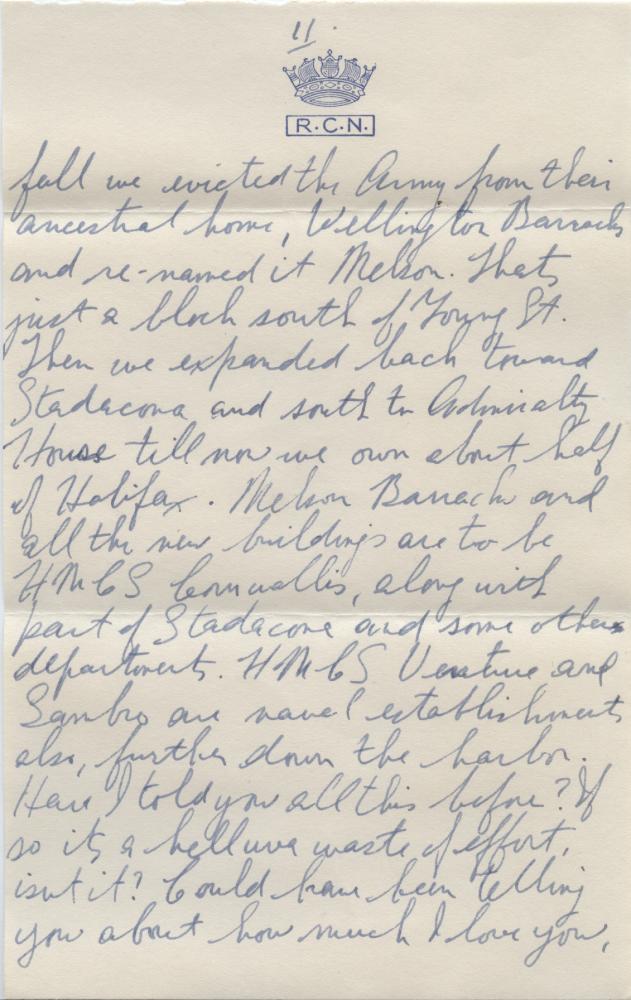 11.
R.C.N.
fall we evicted the Army from their
ancestral home, Wellington Barracks
and re-named it Nelson. Thats
just a block south of Young St.
Then we expanded back toward
Stadacona and south to Admiralty
House till now we own about half
of Halifax. Nelson Barracks and
all the new buildings are to be
HMCS Cornwallis, along with
part of Stadacona and some other
departments. HMCS Venture and
Sambro are naval establishments
also, further down the harbor.
Have I told you all this before? If
so its a helluva waste of effort,
isnt it? Could have been telling
you about how much I love you,